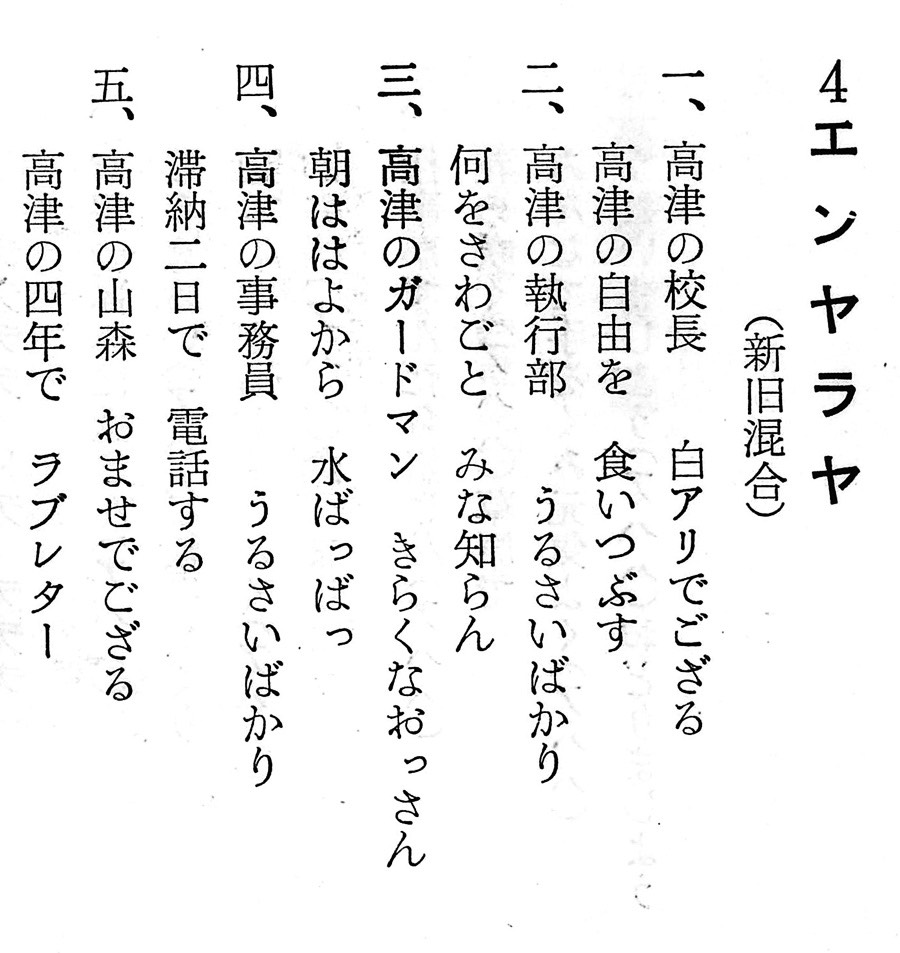 4エンヤラヤ
（新旧混合）
一、高津の校長　白アリでござる
高津の自由を　食いつぶす
二、高津の執行部　うるさいばかり
何をさわごと　みな知らん
三、高津のガードマン　きらくなおっさん
朝ははよから　水ばっばっ
四、高津の事務員　うるさいばかり
滞納二日で　電話する
五、高津の山森　おませでござる
高津の四年で　ラブレター